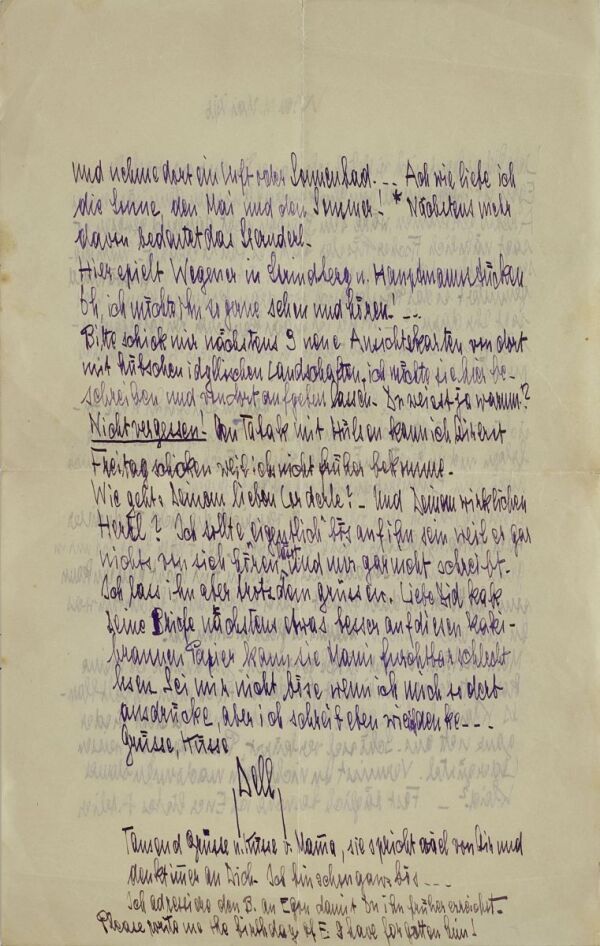 und nehme dort ein Luft oder Sonnenbad. - - Ach wie liebe ich
die Sonne den Mai und den Sommer! * Nächstens mehr
davon bedeutet das Sternderl.
Hier spielt Wegener in Strindberg u. Hauptmannstücken
Oh, ich möchte ihn so gerne sehen und hören! - -
Bitte schick mir nächstens 9 neue Ansichtskarten von dort
mit hübschen idyllischen Landschaften, ich möchte sie hier be-
schreiben und von dort aufgeben lassen. Du weisst ja warum?
Nicht vergessen! Den Tabak mit Hülsen kann ich Dir erst
Freitag schicken weil ich nicht früher bekomme.
Wie geht's Deinem lieben - Und Deinem wirklichen
Herzl? Ich sollte eigentlich bös auf ihn sein weil er gar
nichts von sich hören lässt und mir gar nicht schreibt.
Ich lass ihn aber trotzdem grüssen. Liebe
Deine Briefe nächstens etwas besser auf diesen kaki-
braunen Papier kann sie Mami furchtbar schlecht
lesen. Sei mir nicht böse wenn ich mich so dort
ausdrücke, aber ich schreib eben wie ich denke - - -
Grüsse, Küsse
Dell
Tausend Grüsse u. Küsse v. Mama, sie spricht von Dir und
denkt immer an Dich. Ich bin schon ganz bös - - -
Ich adressiere den B. an Egon damit Du ihn früher erreichst.
Please write me the Birthday of E. I have forgotten him!